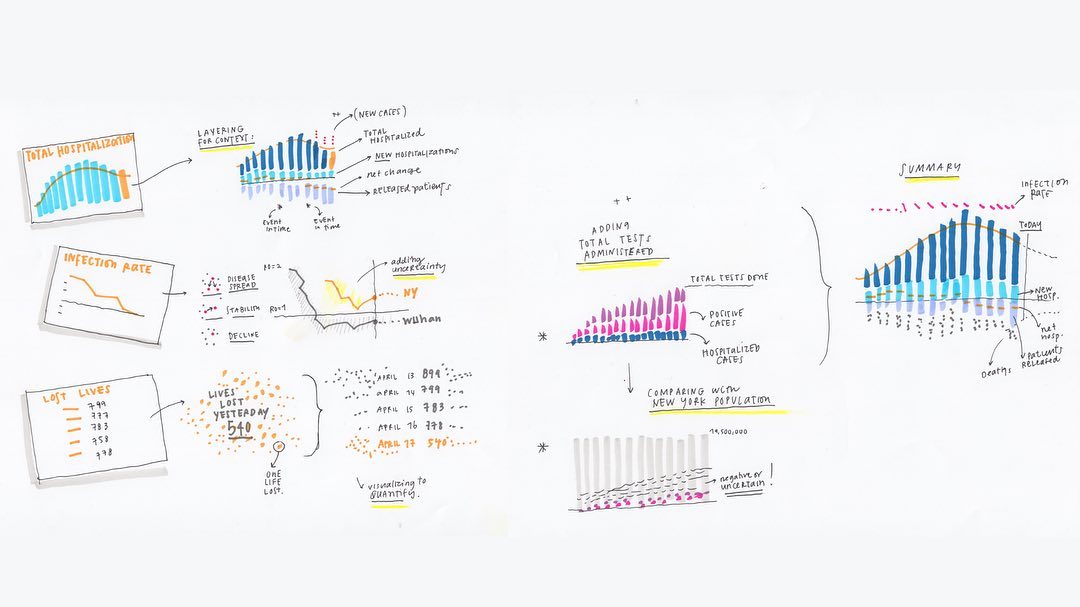 TOTAL HOSPITALIZATION
LAYERING
FOR CONTEXT:
++ (NEW CASES)
TOTAL
HOSPITALIZED
NEW HOSPITALIZATIONS
net change
RELEASED PATIENTS
EVENT
IN TIME
EVENT
in time
INFECTION RATE
DISEASE
SPREAD
STABILISM
DECLINE
R0=2
R0=1
adding
uncertainty
NY
wuhan
LOST LIVES
799
777
783
758
778
LIVES
LOST
YESTERDAY
540
ONE
LIFE
LOST.
APRIL 13 899
APRIL 14 799
APRIL 15 783
APRIL 16 778
APRIL 17 540
visualizing to
QUANTIFY.
++
ADDING
TOTAL TESTS
ADMINISTERED
TOTAL TESTS DONE
POSITIVE
CASES
HOSPITALIZED
CASES
*
COMPARING WITH
NEW YORK POPULATION
*
19,500,000
negative or
uncertain!
SUMMARY
INFECTION
RATE
TODAY
NEW
HOSP.
net
hosp.
Patients
released
Deaths